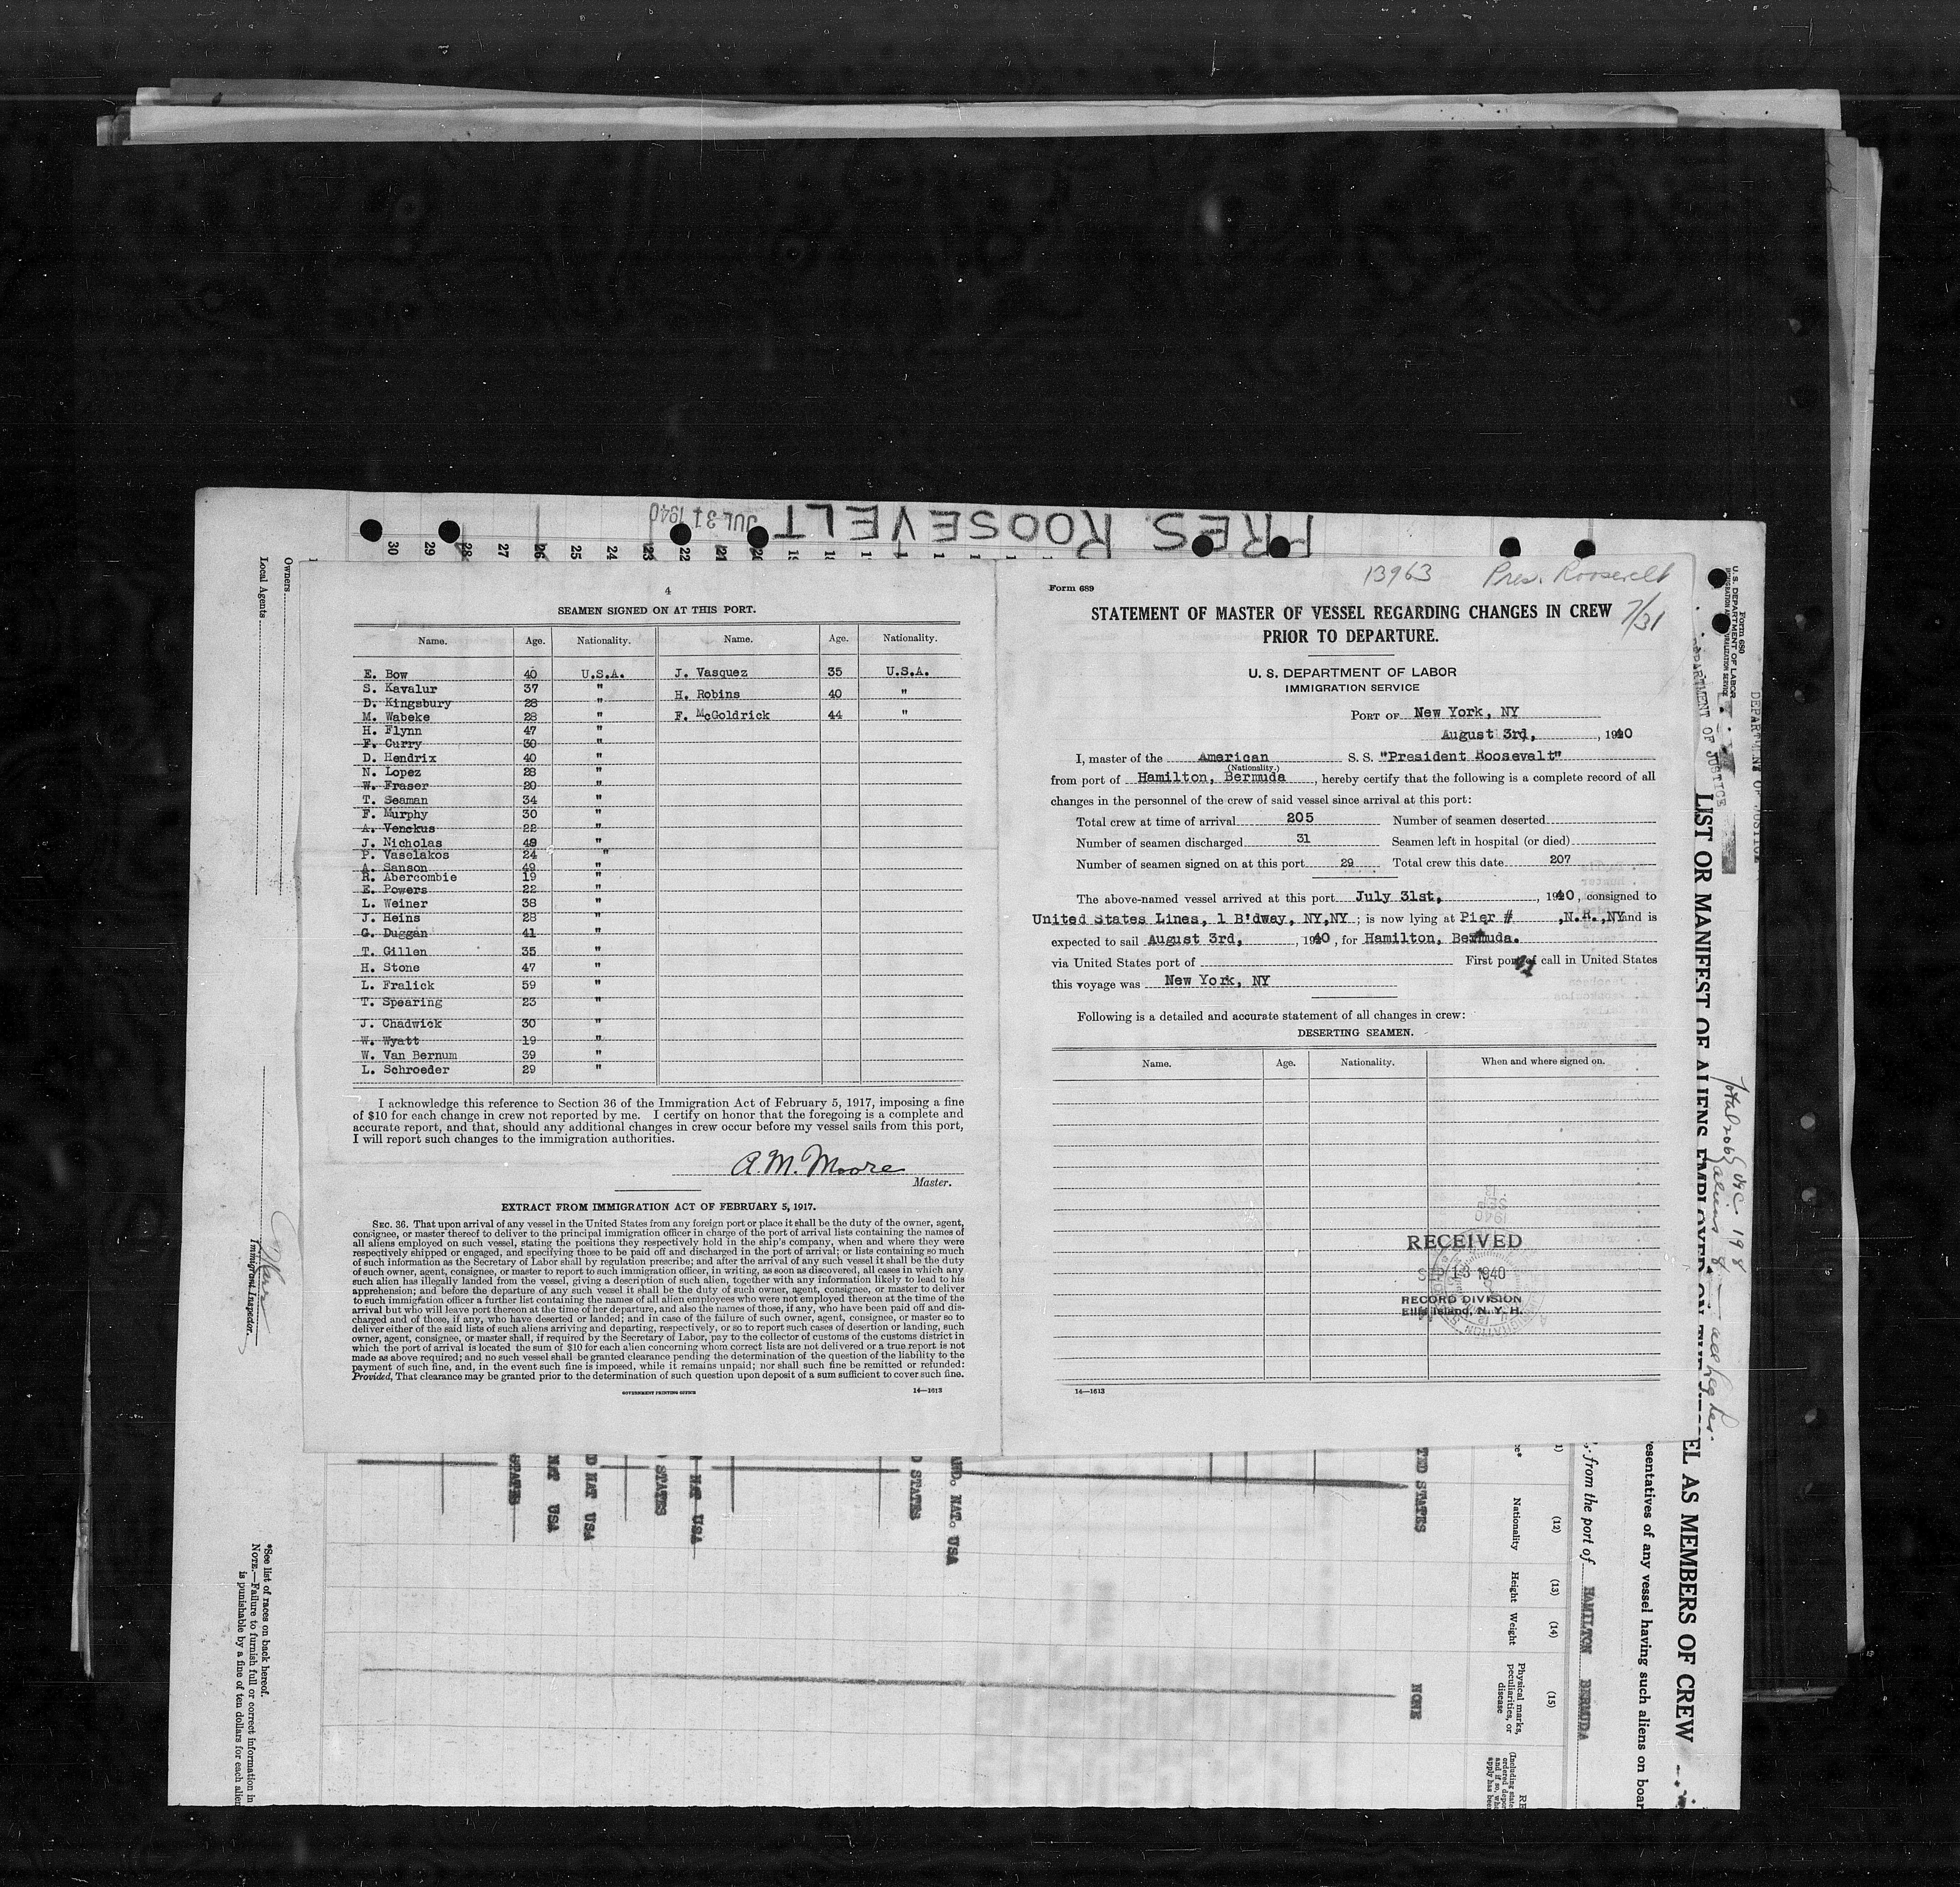 PRES ROOSEVELT
JUL 31 1940
30 29 28 27 26 25 24 23 22 21 20
Owners
Local Agents
4
SEAMEN SIGNED ON AT THIS PORT.
Name. Age. Nationality. Name. Age. Nationality.
E. Bow 40 U.S.A. J. Vasquez 35 U.S.A.
S. Kavalur 37 " H. Robins 40 "
D. Kingsbury 28 "
M. Wabeke 28 " F. McGoldrick 44 "
H. Flynn 47 "
F. Curry 30 "
D. Hendrix 40 "
N. Lopez 28 "
W. Fraser 20 "
T. Seaman 34 "
F. Murphy 30 "
A. Venckus 22 "
J. Nicholas 49 "
P. Vaselakos 24 "
A. Sanson 49 "
R. Abercombie 19 "
E. Powers 22 "
L. Weiner 38 "
J. Heins 28 "
G. Duggan 41 "
T. Gillen 35 "
H. Stone 47 "
L. Fralick 59 "
T. Spearing 23 "
J. Chadwick 30 "
W. Wyatt 19 "
W. Van Bernum 39 "
L. Schroeder 29 "
I acknowledge this reference to Section 36 of the Immigration Act of February 5, 1917, imposing a fine
of $10 for each change in crew not reported by me. I certify on honor that the foregoing is a complete and
accurate report, and that, should any additional changes in crew occur before my vessel sails from this port,
I will report such changes to the immigration authorities.
A. M. Moore
Master.
EXTRACT FROM IMMIGRATION ACT OF FEBRUARY 5, 1917.
SEC. 36. That upon arrival of any vessel in the United States from any foreign port or place it shall be the duty of the owner, agent,
consignee, or master thereof to deliver to the principal immigration officer in charge of the port of arrival lists containing the names of
all aliens employed on such vessel, stating the positions they respectively hold in the ship's company, when and where they were
respectively shipped or engaged, and specifying those to be paid off and discharged in the port of arrival; or lists containing so much
of such information as the Secretary of Labor shall by regulation prescribe; and after the arrival of any such vessel it shall be the duty
of such owner, agent, consignee, or master to report to such immigration officer, in writing, as soon as discovered, all cases in which any
such alien has illegally landed from the vessel, giving a description of such alien, together with any information likely to lead to his
apprehension; and before the departure of any such vessel it shall be the duty of such owner, agent, consignee, or master to deliver
to such immigration officer a further list containing the names of all alien employees who were not employed thereon at the time of the
arrival but who will leave port thereon at the time of her departure, and also the names of those, if any, who have been paid off and dis-
charged and of those, if any, who have deserted or landed; and in case of the failure of such owner, agent, consignee, or master so to
deliver either of the said lists of such aliens arriving and departing, respectively, or so to report such cases of desertion or landing, such
owner, agent, consignee, or master shall, if required by the Secretary of Labor, pay to the collector of customs of the customs district in
which the port of arrival is located the sum of $10 for each alien concerning whom correct lists are not delivered or a true report is not
made as above required; and no such vessel shall be granted clearance pending the determination of the question of the liability to the
payment of such fine, and, in the event such fine is imposed, while it remains unpaid; nor shall such fine be remitted or refunded:
Provided, That clearance may be granted prior to the determination of such question upon deposit of a sum sufficient to cover such fine.
GOVERNMENT PRINTING OFFICE 14—1613
Form 689
13963 Pres. Roosevelt
7/31
STATEMENT OF MASTER OF VESSEL REGARDING CHANGES IN CREW
PRIOR TO DEPARTURE.
U. S. DEPARTMENT OF LABOR
IMMIGRATION SERVICE
PORT OF New York, NY
August 3rd, , 1940
I, master of the American S. S. "President Roosevelt"
(Nationality.)
from port of Hamilton, Bermuda , hereby certify that the following is a complete record of all
changes in the personnel of the crew of said vessel since arrival at this port:
Total crew at time of arrival 205 Number of seamen deserted
Number of seamen discharged 31 Seamen left in hospital (or died)
Number of seamen signed on at this port 29 Total crew this date 207
The above-named vessel arrived at this port July 31st, , 1940, consigned to
United States Lines, 1 B'dway, NY,NY ; is now lying at Pier # ,N.R.,NY and is
expected to sail August 3rd, , 1940, for Hamilton, Bermuda.
via United States port of First port of call in United States
this voyage was New York, NY
Following is a detailed and accurate statement of all changes in crew:
DESERTING SEAMEN.
Name. Age. Nationality. When and where signed on.
RECEIVED
SEP 13 1940
RECORD DIVISION
Ellis Island, N. Y. H.
14—1613
Form 680
U. S. DEPARTMENT OF LABOR
DEPARTMENT OF JUSTICE
LIST OR MANIFEST OF ALIENS EMPLOYED ON THE VESSEL AS MEMBERS OF CREW
Total 206
aliens 8
resentatives of any vessel having such aliens on boar
, from the port of HAMILTON BERMUDA
(12) (13) (14) (15)
Nationality Height Weight Physical marks, peculiarities, or disease
TED STATES
NONE
AND. NAT. USA
D STATES
NAT USA
D STATES
D NAT USA
NAT USA
STATES
Immigrant Inspector.
*See list of races on back hereof.
NOTE.—Failure to furnish full or correct information in
is punishable by a fine of ten dollars for each alien